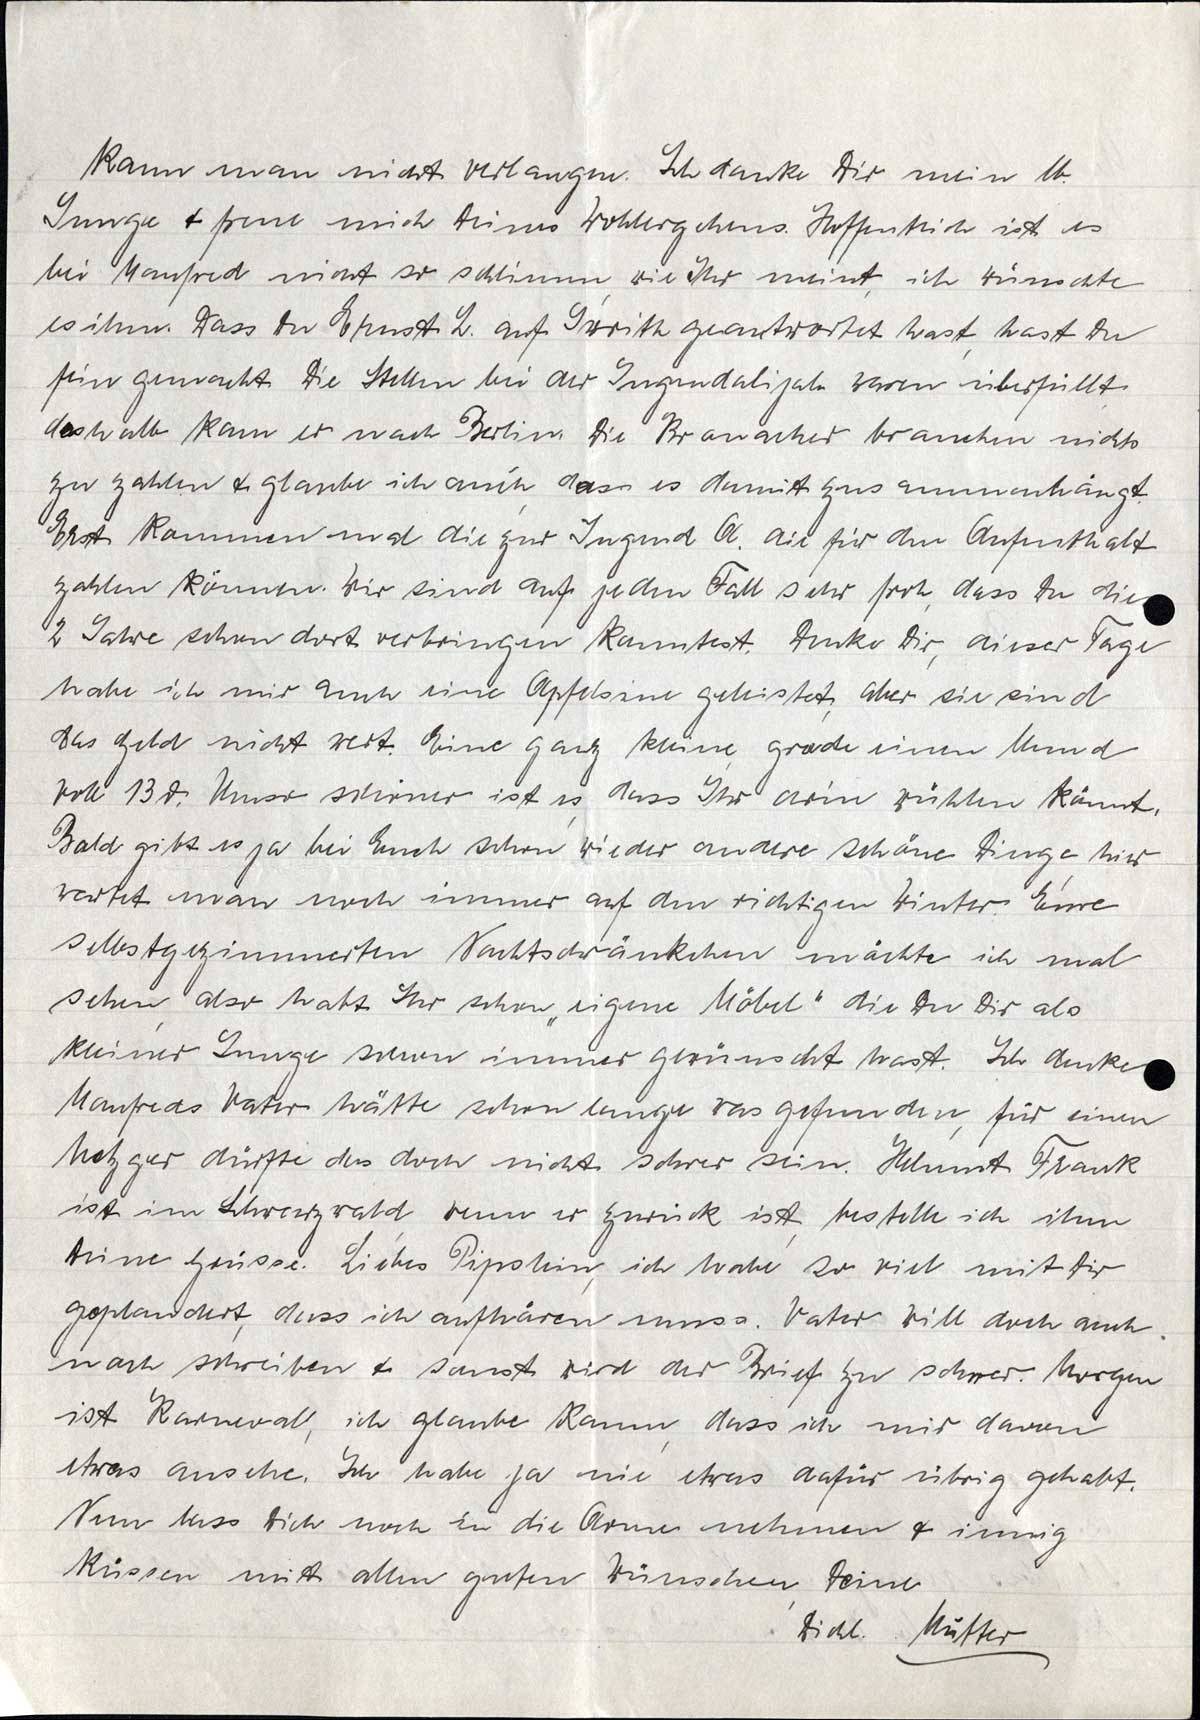 Kann man nicht verlangen. Ich danke Dir mein lb.
Junge & freue mich Deines Wohlergehens. Hoffentlich ist es
bei Manfred nicht so schlimm, wie Ihr meint, ich wünschte
es ihm. Dass Du Ernst L. auf Iwrith geantwortet hast, hast Du
fein gemacht. Die Stellen bei der Jugendalijah waren überfüllt
deshalb kam er nach Berlin. Die brauchen nichts
zu zahlen & glaube ich auch, dass es damit zusammenhängt.
Erst kommen mal die zur Jugend A. die für den Aufenthalt
zahlen können. Wir sind auf jeden Fall sehr froh, dass Du die
2 Jahre schon dort verbringen konntest. Denke Dir, dieser Tage
habe ich mir auch eine Apfelsine geleistet, aber sie sind
das Geld nicht wert. Eine ganz kleine, grade einen Mund
voll 13 d. Umso schöner ist es, dass Ihr drin wühlen könnt.
Bald gibt es ja bei Euch schon wieder andere schöne Dinge, hier
wartet man noch immer auf den richtigen Winter. Eure
selbstgezimmerten Nachtschränkchen möchte ich mal
sehen, also habt Ihr schon „eigene Möbel" die Du Dir als
kleiner Junge schon immer gewünscht hast. Ich denke
Manfreds Vater hätte schon lange was gefunden, für einen
Metzger dürfte das doch nicht schwer sein. Helmut Frank
ist im Schwarzwald, wenn er zurück ist, bestelle ich ihm
Deine Grüsse. Liebes Pipslein, ich habe so viel mit Dir
geplaudert, dass ich aufhören muss. Vater will doch auch
noch schreiben & sonst wird der Brief zu schwer. Morgen
ist Karneval, ich glaube kaum, dass ich mir davon
etwas ansehe. Ich habe ja nie etwas dafür übrig gehabt.
Nun lass Dich noch in die Arme nehmen & innig
küssen mit allen guten Wünschen, Deine
Dichl. Mutter